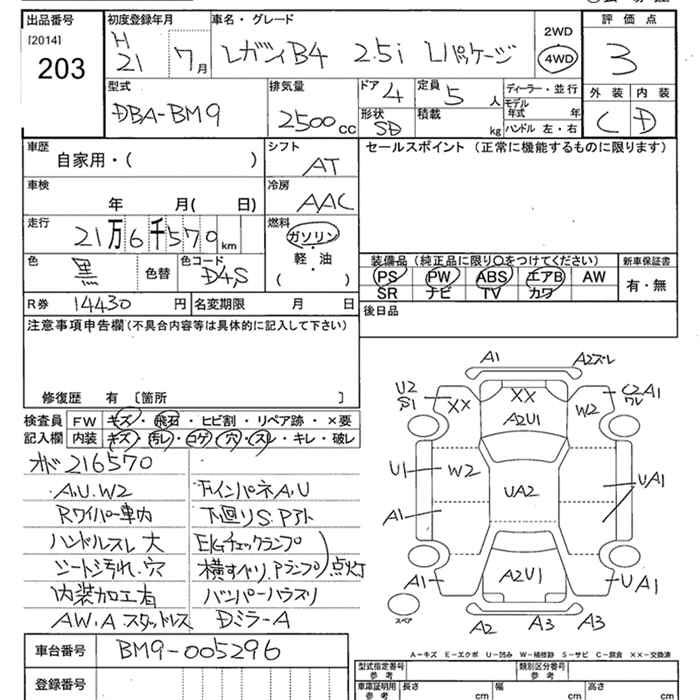 出品番号 初度登録年月 車名・グレード 評価点
[2014] H 2WD
203 21 7月 レガシィB4 2.5i Lパッケージ 4WD 3
型式 排気量 ドア 4 定員 5人 ディーラー・並行 外装 内装
モデル年式 年
DBA-BM9 2500cc 形状 SD 積載 kg ハンドル 左・右 C D
車歴 シフト セールスポイント (正常に機能するものに限ります)
自家用・( ) AT
車検 冷房
年 月( 日) AAC
走行 燃料
21万6千570km ガソリン
軽・油
( )
色 黒 色替 色コード D4S
装備品 (純正品に限り○をつけてください) 新車保証書
PS PW ABS エアB AW 有・無
SR ナビ TV カワ
R券 14430円 名変期限 月 日 後日品
注意事項申告欄 (不具合内容等は具体的に記入して下さい)
修復歴 有 [箇所 ]
検査員 FW キズ・飛石・ヒビ割・リペア跡・×要
記入欄 内装 キズ・汚レ・コゲ・穴・スレ・キレ・破レ
216570
A.U.W2 インパネA.U
Rワイパー車力 下廻りS.P
ハンドルスレ大 E/Gチェックランプ
シート汚れ.穴 横すべり.Pランプ 点灯
内装加工有 バンパーハズリ
AW.A スタッドレス DミラーA
車台番号 BM9-005296
登録番号
A1 A2ズレ
U2 S1 XX XX W2 C2A1 ワレ
A2U1
U1 W2 UA2 UA1
A1
A1 A2U1 UA1
スペア
A2 A3 A3
A-キズ E-エクボ U-凹み W-補修跡 S-サビ C-腐食 XX-交換済
型式指定番号 参考 類別区分番号 参考
車庫証明用 参考 長さ cm 幅 cm 高さ cm